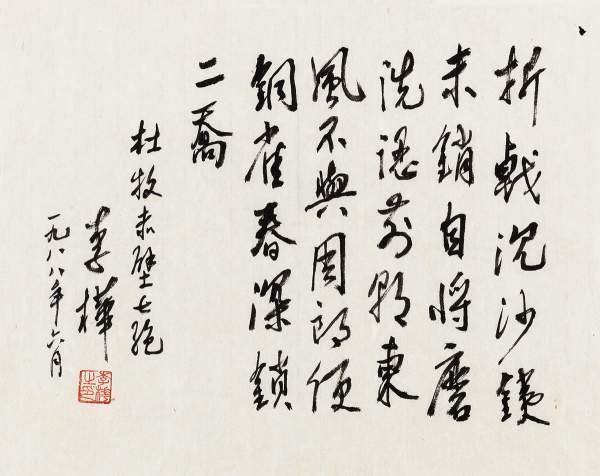 折戟沉沙鐵
未銷自將磨
洗認前朝東
風不與周郎便
銅雀春深鎖
二喬
杜牧赤壁七絕
李樺
一九八八年六月
李樺之印